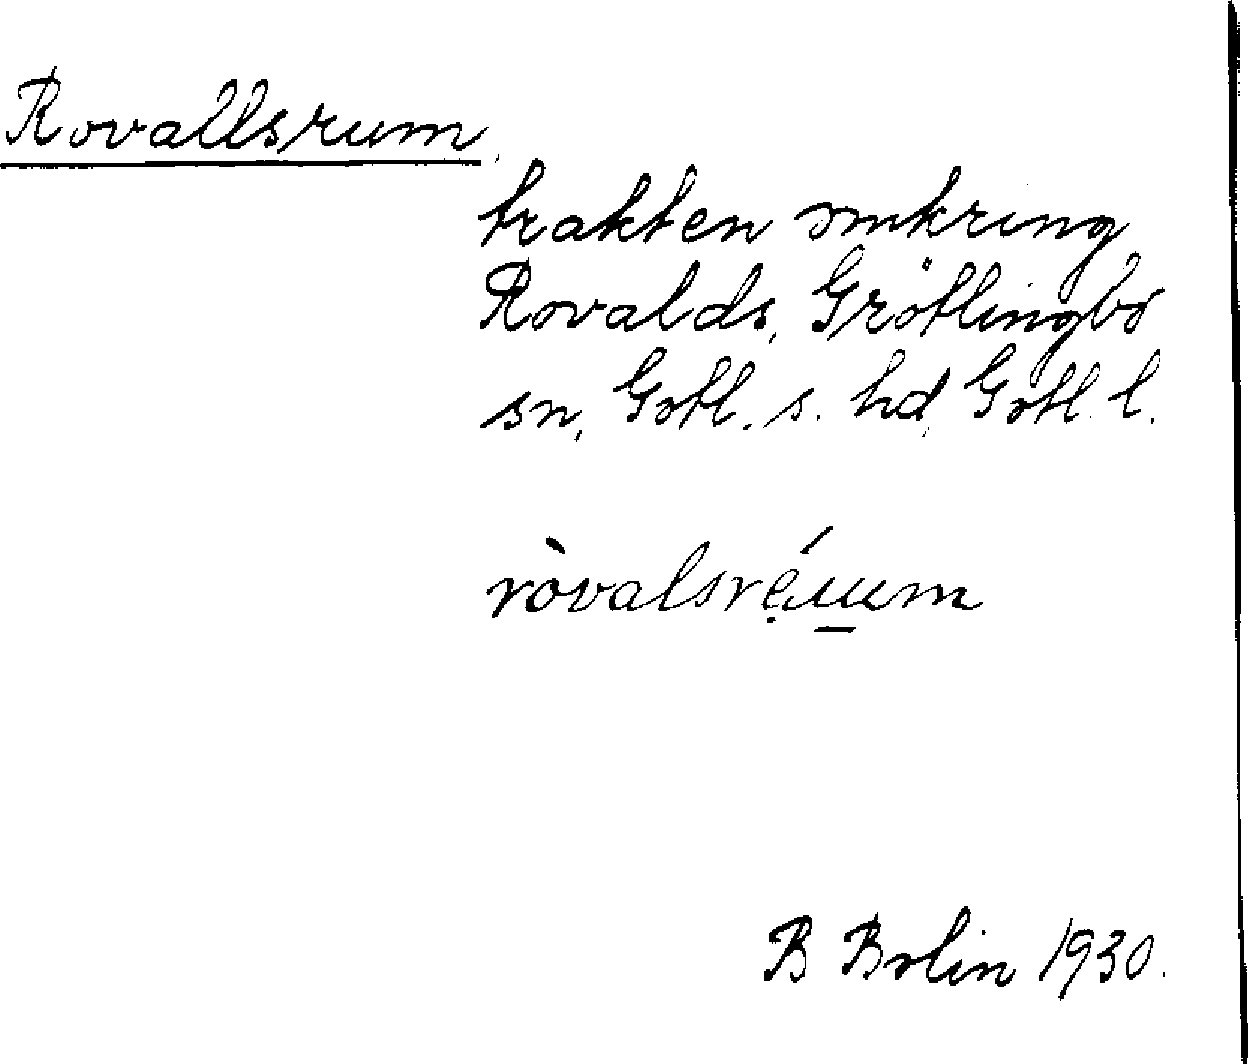 Rovallsrum,
trakten omkring
Rovalds, Grötlingbo
sn, Gotl. s. hd, Gotl. l.
ròvalsrẹ́u̲um
B Bolin 1930.